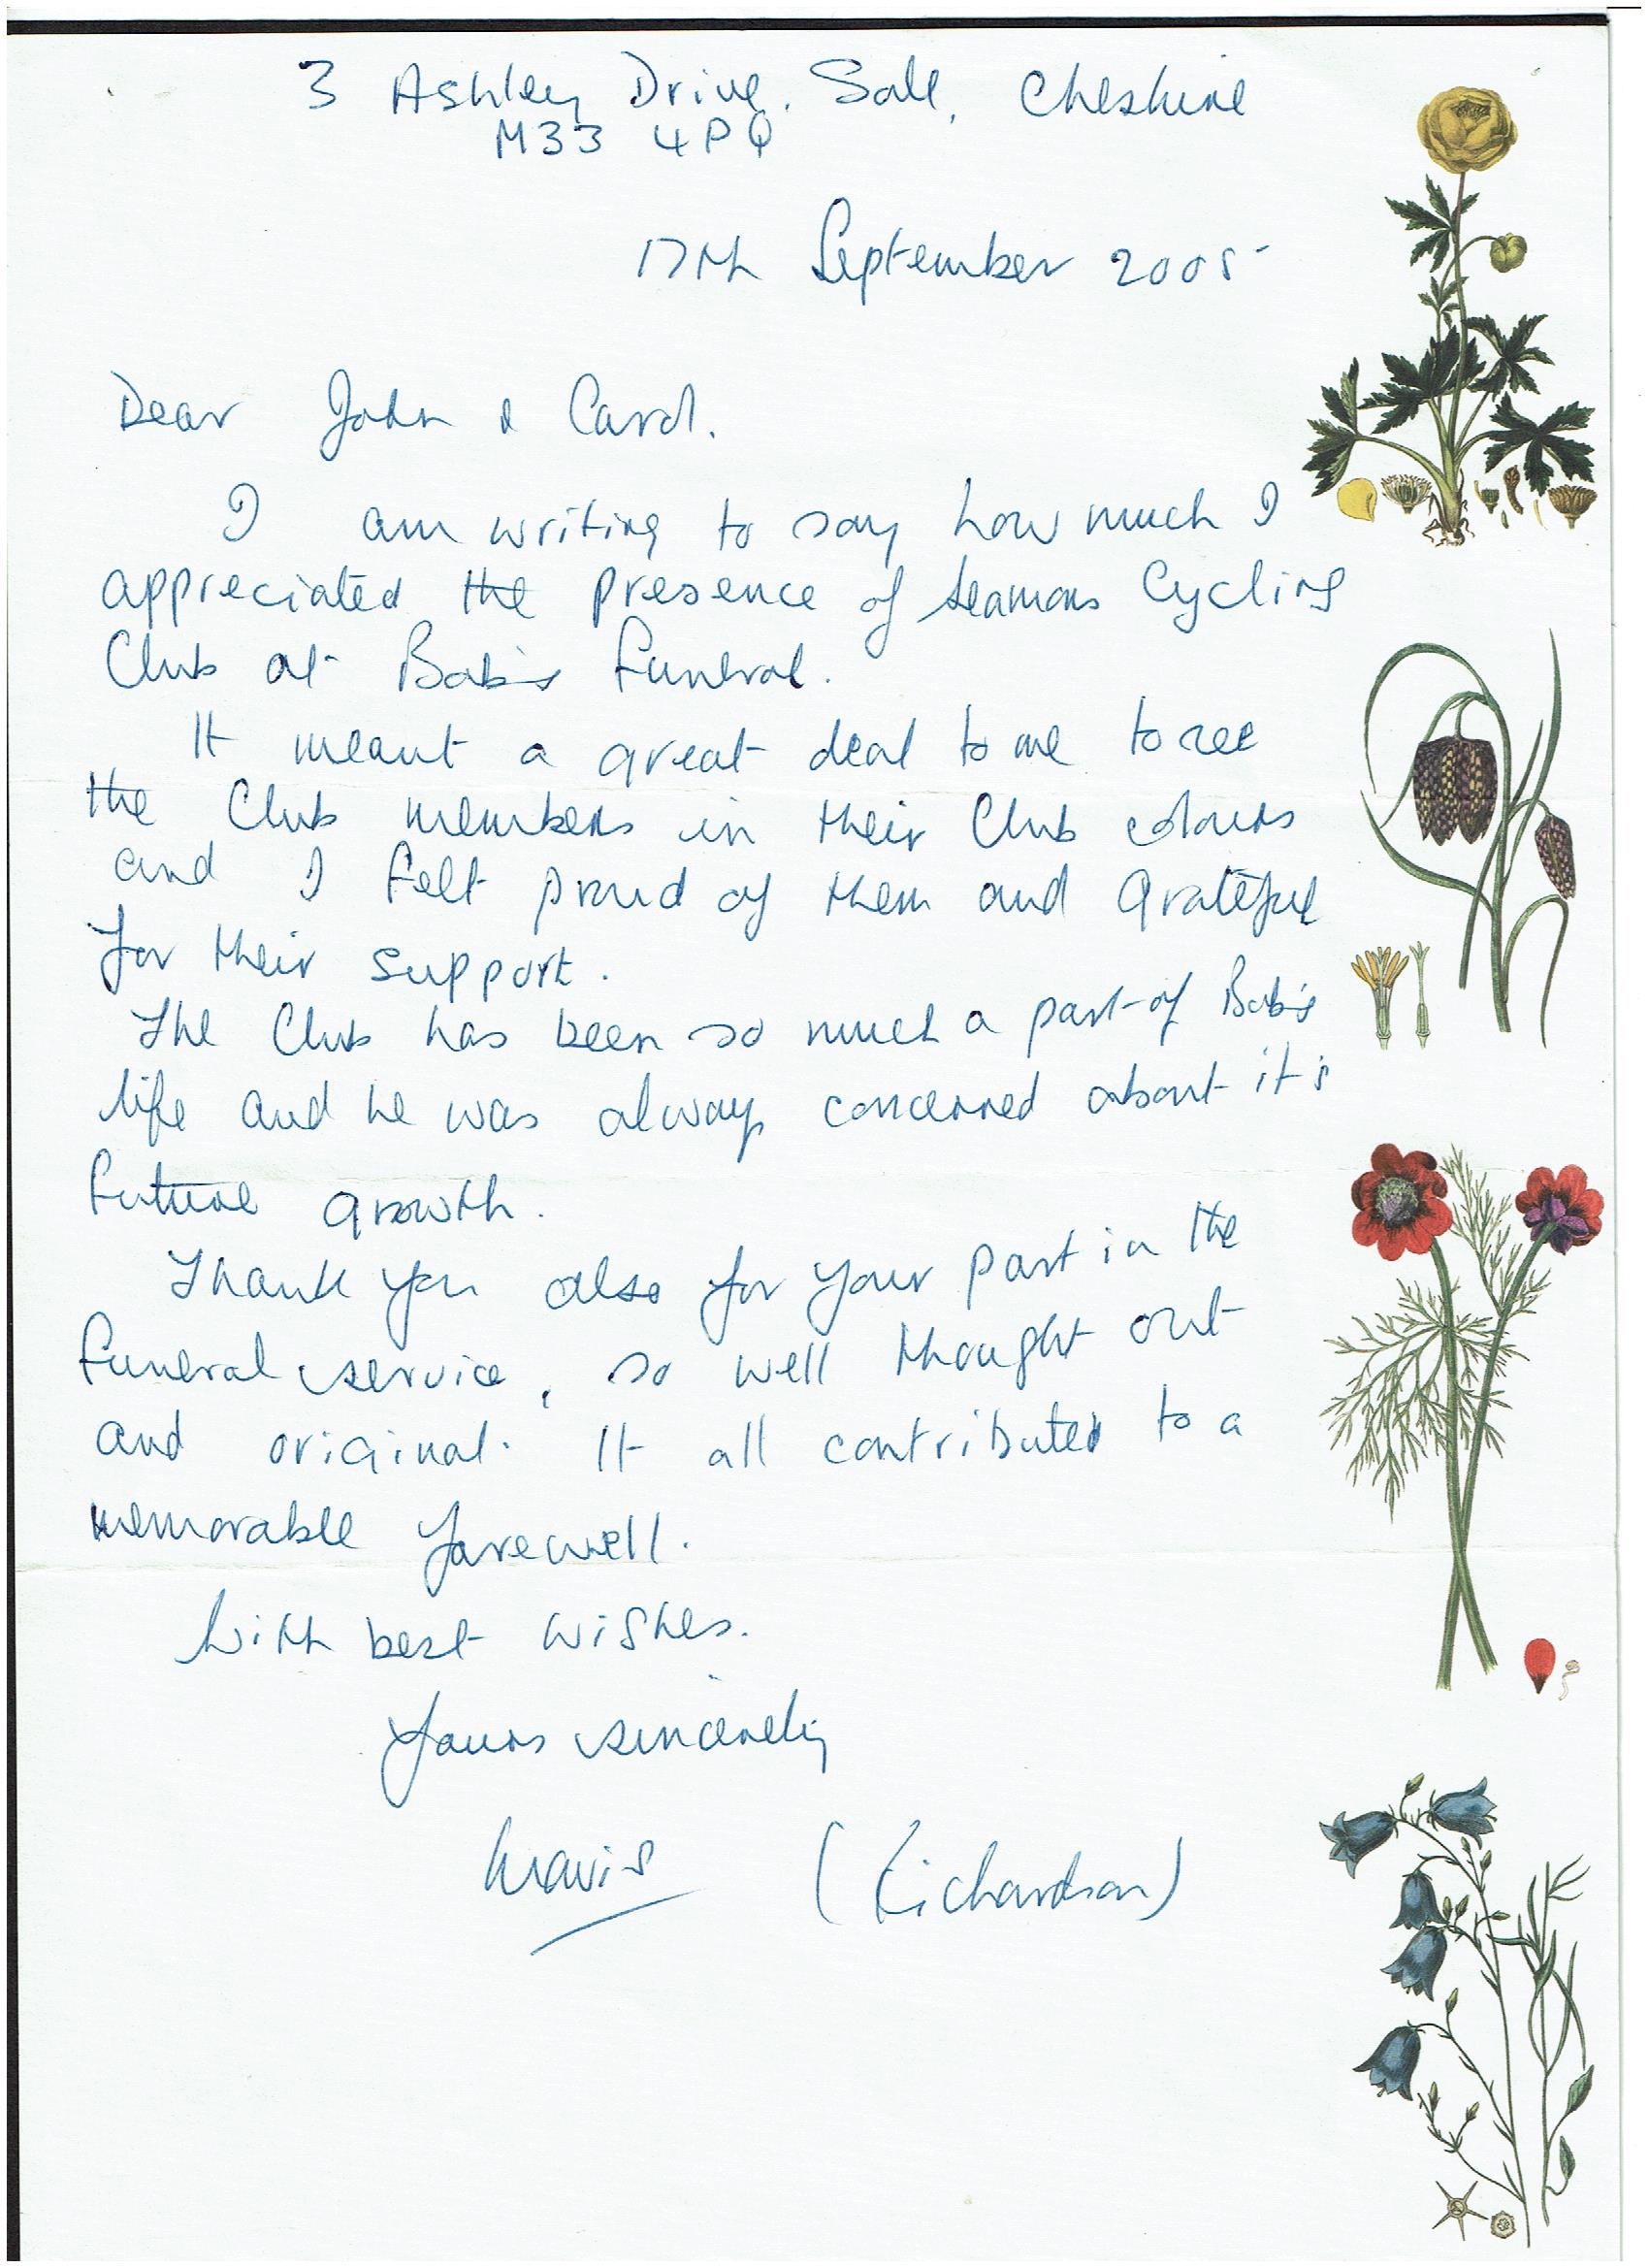 3 Ashley Drive, Sale, Cheshire
M33 4PQ
17th September 2005
Dear John & Carol.
I am writing to say how much I
appreciated the presence of Seamons Cycling
Club at Bob's Funeral.
It meant a great deal to me to see
the Club members in their Club colours
and I felt proud of them and grateful
for their support.
The Club has been so much a part of Bob's
life and he was always concerned about it's
future growth.
Thank you also for your part in the
Funeral service, so well thought out
and original. It all contributed to a
memorable farewell.
With best wishes.
Yours sincerely
Mavis (Richardson)